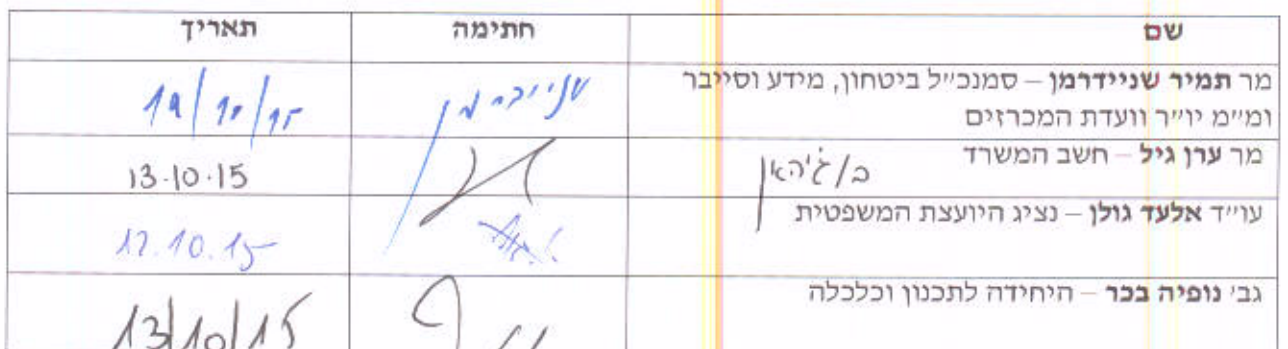 שם חתימה תאריך
מר תמיר שניידרמן – סמנכ״ל ביטחון, מידע וסייבר
ומ״מ יו״ר וועדת המכרזים שניידרמן
מר ערן גיל – חשב המשרד 13.10.15
עו״ד אלעד גולן – נציג היועצת המשפטית 12.10.15
גב׳ נופיה בכר – היחידה לתכנון וכלכלה 13/10/15